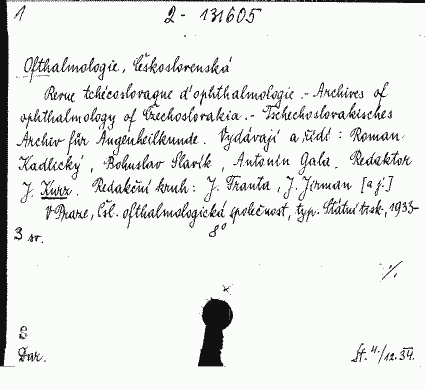 1 2 - 131605
Ofthalmologie, Československá
Revue tchécoslovaque d'ophthalmologie. - Archives of
ophthalmology of Czechoslovakia. - Tschechoslovakisches
Archiv für Augenheilkunde. Vydávají a řídí: Roman
Kadlický, Bohuslav Slavík, Antonín Gala. Redaktor
J. Kurz. Redakční kruh: J. Franta, J. Jirman [a j.]
V Praze, Čsl. ofthalmologická společnost, typ. Státní tisk., 1933-
3 sv. 8°
%
8
Dar. St. 4./12.34.